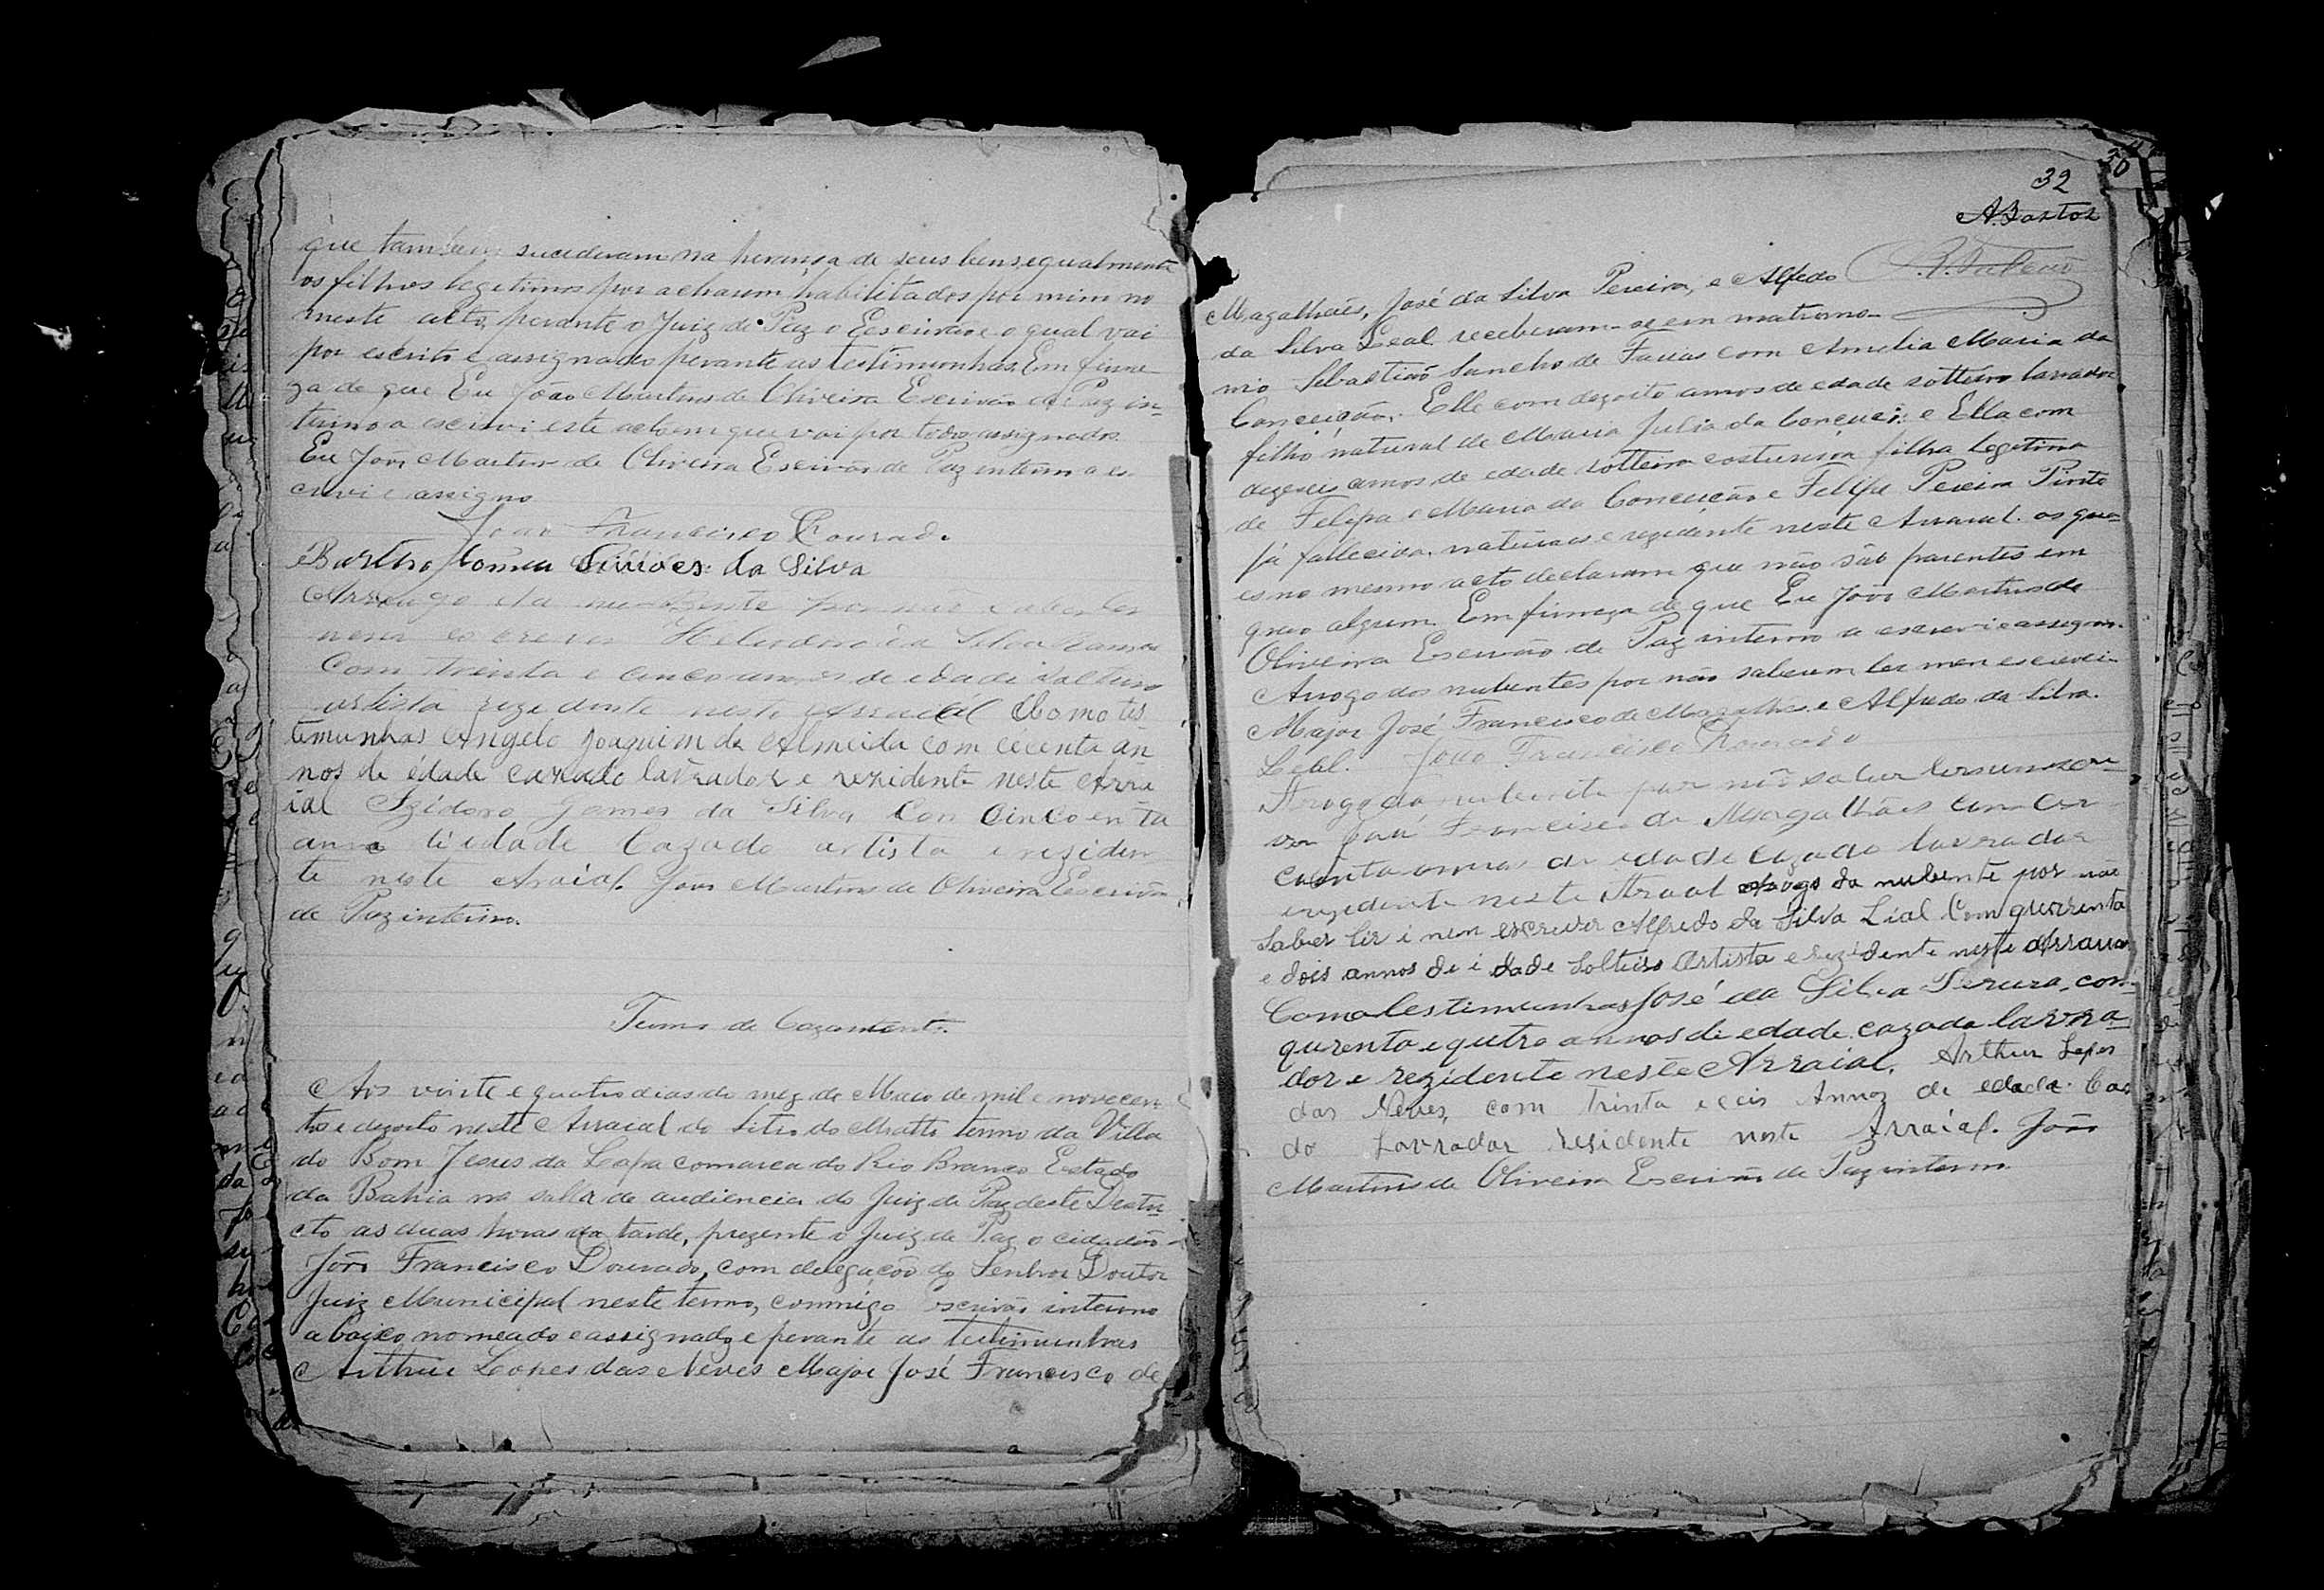 que tambem sucederam na herança de seus bens, egualmente
os filhos legitimos por acharem habilitados por mim no
neste acto, perante o Juiz de Paz o Escrivão e o qual vai
por escrito e assignado perante as testimunhas. Em firme
za de que Eu João Martins de Oliveira Escrivão de Paz in-
terino a escrivi este acto em que vai por todos assignados.
Eu João Martins de Oliveira Escrivão de Paz interino a es-
crivi e assigno
João Francisco Dourado
Bartholomeu Simões da Silva
Arrogo da nubente por não saber ler
nem escrever Heliodorio da Silva
com trinta e cinco annos de edade solteiro
artista rezidente neste Arraial Como tes
temunhas Angelo Joaquim de Almeida com cecenta an
nos de édade cazado lavrador e rezidente neste Arra
ial Izidoro Gomes da Silva Con Cincoenta
anno di edade Cazado artista e reziden
te neste Araial. João Martins de Oliveira Escrivão
de Paz interino.
Termo de Cazamento.
Aos vinte e quatro dias do mez de Maio de mil e novecen-
tos e dezoito neste Arraial do Sitio do Matto termo da Villa
do Bom Jesus da Lapa comarca do Rio Branco Estado
da Bahia na salla de audiencia do Juiz de Paz deste Destri
cto as duas horas da tarde, prezente o Juiz de Paz o cidadão
João Francisco Dourado, com delegação do Senhor Doutor
Juiz Municipal neste termo, commigo escrivão interino
abaixo nomeado e assignado, e perante as testimunhas
Arthur Lopes das Neves Major José Francisco de
30
32
A. Bastos
Magalhães, José da Silva Pereira, e Alfedo
da Silva Leal receberam-se em matrimo-
nio Sebastião Sancho de Farias com Amelia Maria da
Conceição. Elle com dezoito annos de edade solteiro lavrador
filho natural de Maria Julia da Conceiç: e Ella com
dezeseis annos de edade solteira costureira filha legitima
de Felipa e Maria da Conceição e Felipe Pereira Pinto
já fallecida, naturaes e rezidente neste Arraial. os qua-
es no mesmo acto declaram que não são parentes em
grao algum. Em firmeza de que Eu João Martins de
Oliveira Escrivão de Paz interino a escrevi e assigno.
Arrogo dos nubentes por não saberem ler nem escrever
Major José Francisco de Magalhães e Alfredo da Silva.
Leal. João Francisco Dourado
Arrogo da nubente por não saber ler nem escre
ver José Francisco de Magalhães com Cin
coenta annos de edade cazado lavrador
e rezidente neste Arraal arogo da nubente por não
saber ler i nem escrever Alfredo da Silva Lial Com quarenta
e dois annos de i dade Solteiro Artista e rezidente neste Arraia
Como testimunhas José da Silva Pereira, con-
qurenta e qutro annos di edade cazado lavra-
dor e rezidente neste Arraial. Arthur Lopes
das Neves, com trinta e ceis Annos de edade. Caza
do Lavrador residente neste Arraial. João
Martins de Oliveira Escrivão de Paz interino